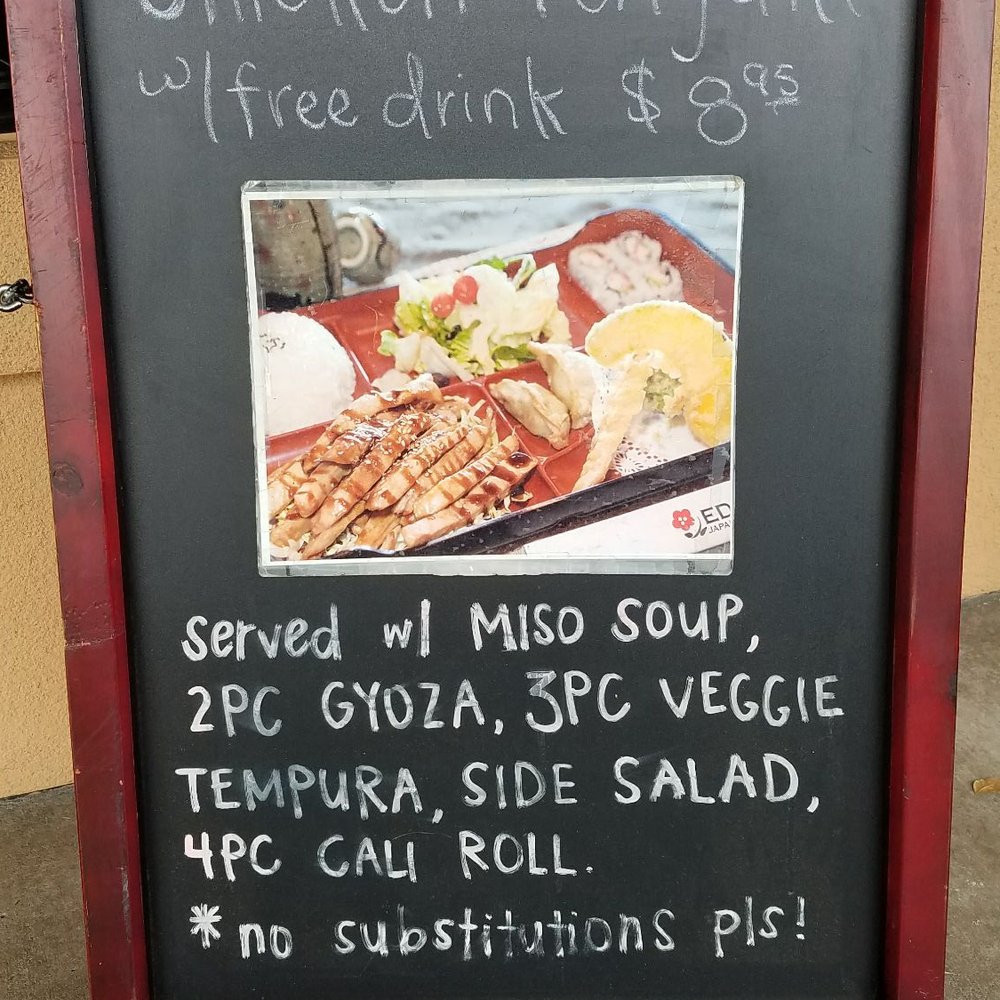 Chicken Teriyaki
w/ free drink $8.95
served w/ MISO SOUP,
2PC GYOZA, 3PC VEGGIE
TEMPURA, SIDE SALAD,
4PC CALI ROLL.
*no substitutions pls!
ED
JAPA